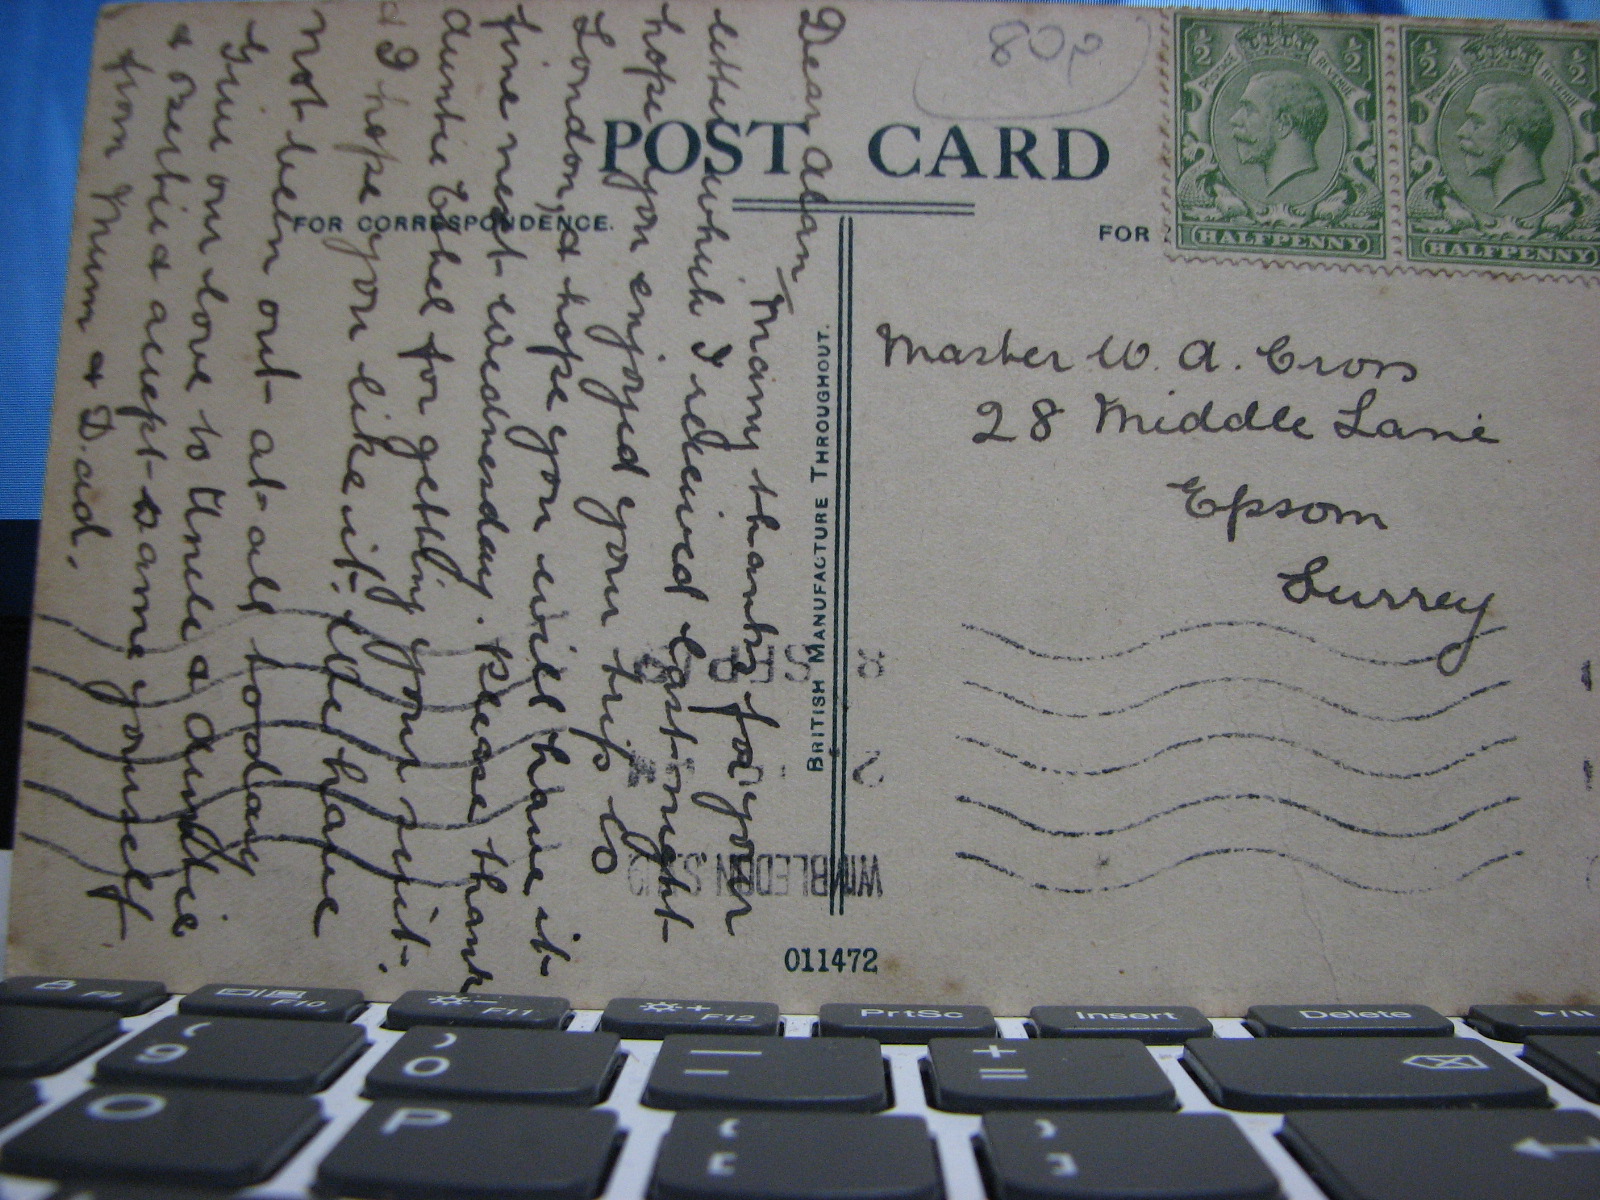 802
POST CARD
FOR CORRESPONDENCE.
FOR
½ ½
POSTAGE REVENUE
HALFPENNY
½ ½
POSTAGE REVENUE
HALFPENNY
Dear Alan
Many thanks for your
letter which I received last night
hope you enjoyed your trip to
London, & hope you will have it
fine next Wednesday. Please thank
Auntie Ethel for getting your suit.
& I hope you like it. We have
not been out at all today
Give our love to Uncle & Auntie
& & accept same yourself
from Mum & Dad.
BRITISH MANUFACTURE THROUGHOUT.
Master W. A. Cross
28 Middle Lane
Epsom
Surrey
WIMBLEDON S.W.19
8 SEP
2
011472
F9
F10
F11
F12
PrtSc
Insert
Delete
( 9
) 0
— -
+ =
O
P
{ [
} ]